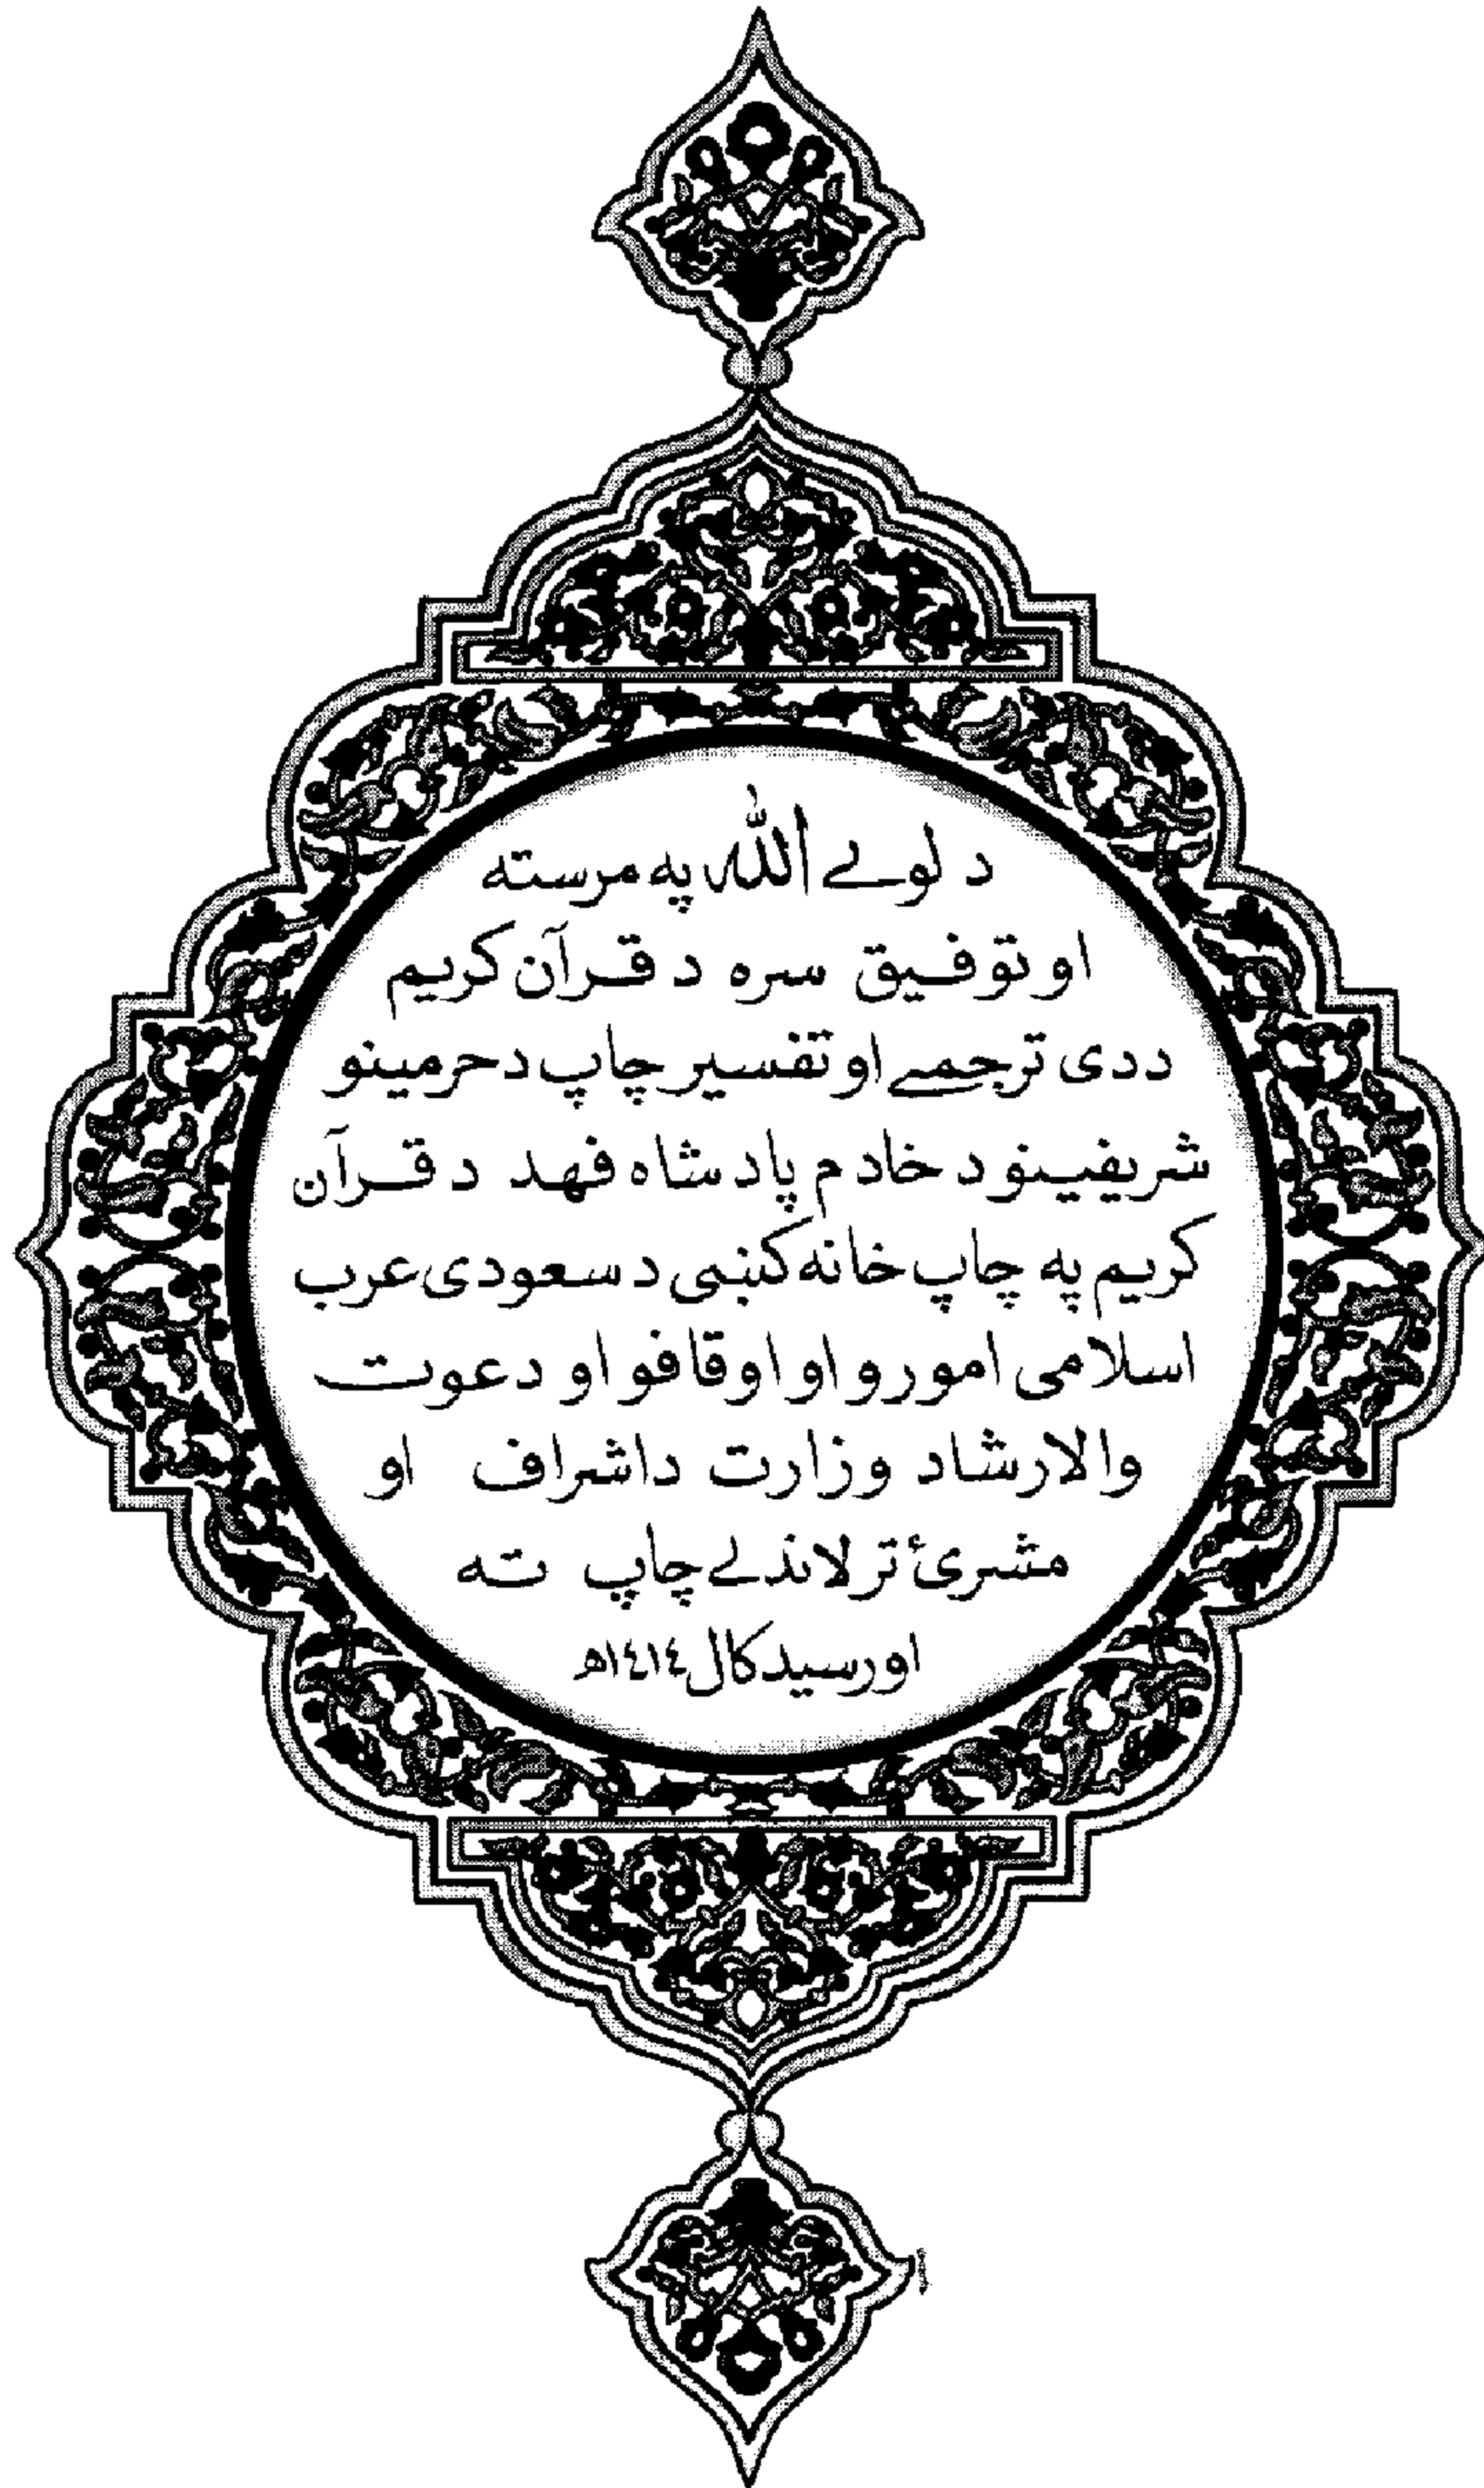 د لوے الله په مرسته
او توفيق سره د قرآن كريم
ددى ترجمے او تفسير چاپ دحرمينو
شريفينو د خادم پادشاه فهد د قرآن
كريم په چاپ خانه كښى د سعودى عرب
اسلامى امورو او اوقافو او دعوت
والارشاد وزارت داشراف او
مشرئ تر لاندے چاپ ته
اورسيد كال ١٤١٤ھ